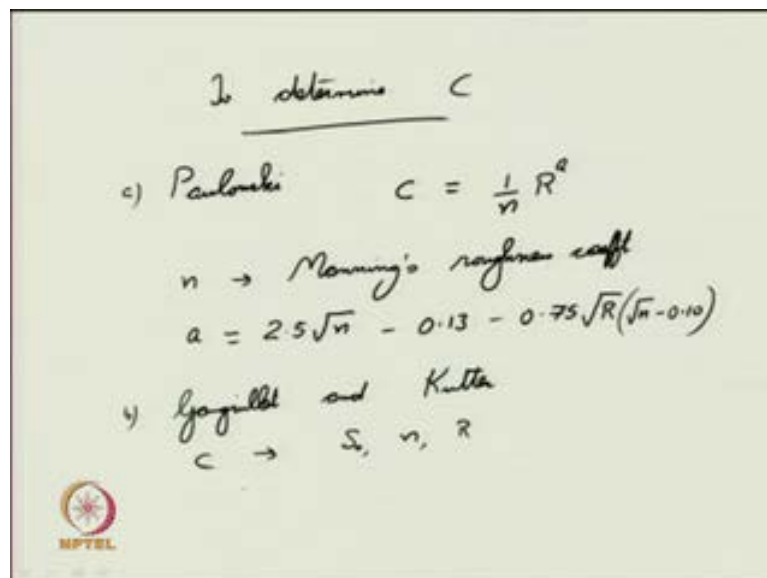 To determine C
a) Paulouski C = 1/n R^a
n → Manning's roughness coefft
a = 2.5√n - 0.13 - 0.75√R(√n - 0.10)
b) Ganguillet and Kutter
C → S₀, n, R
NPTEL